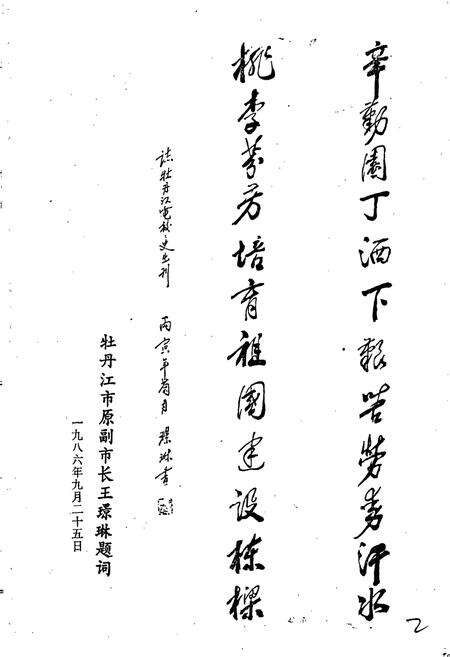 辛勤園丁洒下艰苦劳动汗水
桃李芬芳培育祖國建设栋樑
牡丹江電校史出刊
丙寅年菊月 璟琳書
牡丹江市原副市长王璟琳题词
一九八六年九月二十五日
2